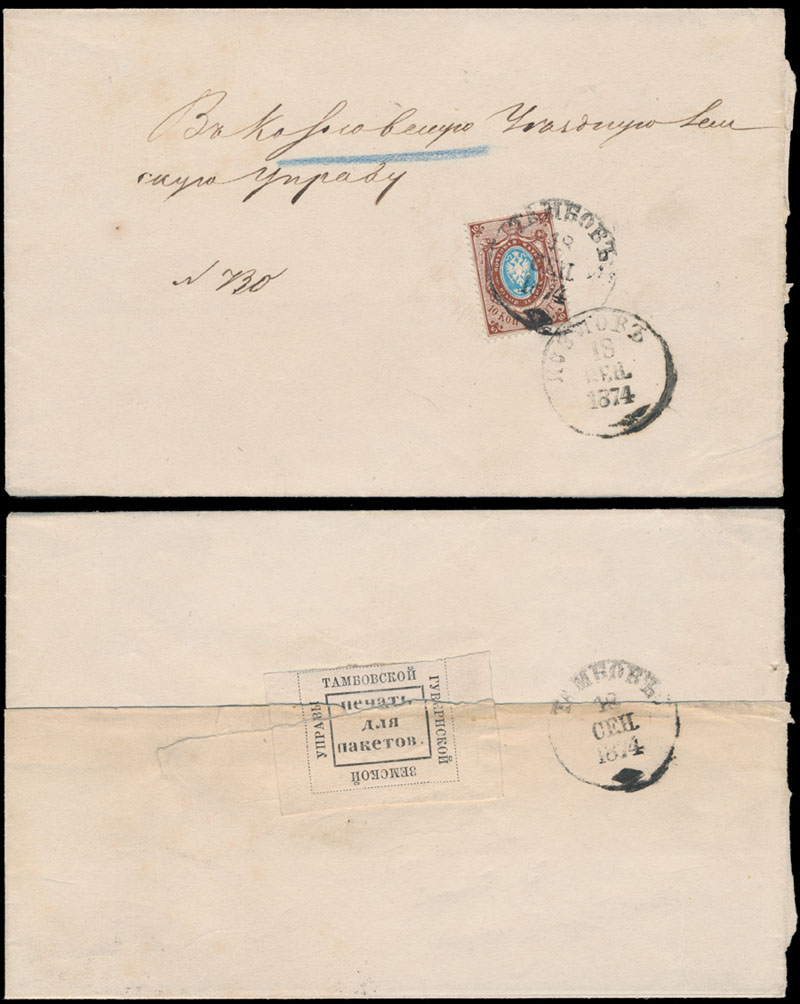 Въ Козловскую Уѣздную Зем
скую Управу
N 130
ТАМБОВЪ
18
10 КОП
КОЗЛОВЪ
18
СЕН.
1874
ТАМБОВСКОЙ
ГУБЕРНСКОЙ
ЗЕМСКОЙ
УПРАВЫ
печать
для
пакетов.
ТАМБОВЪ
СЕН.
1874